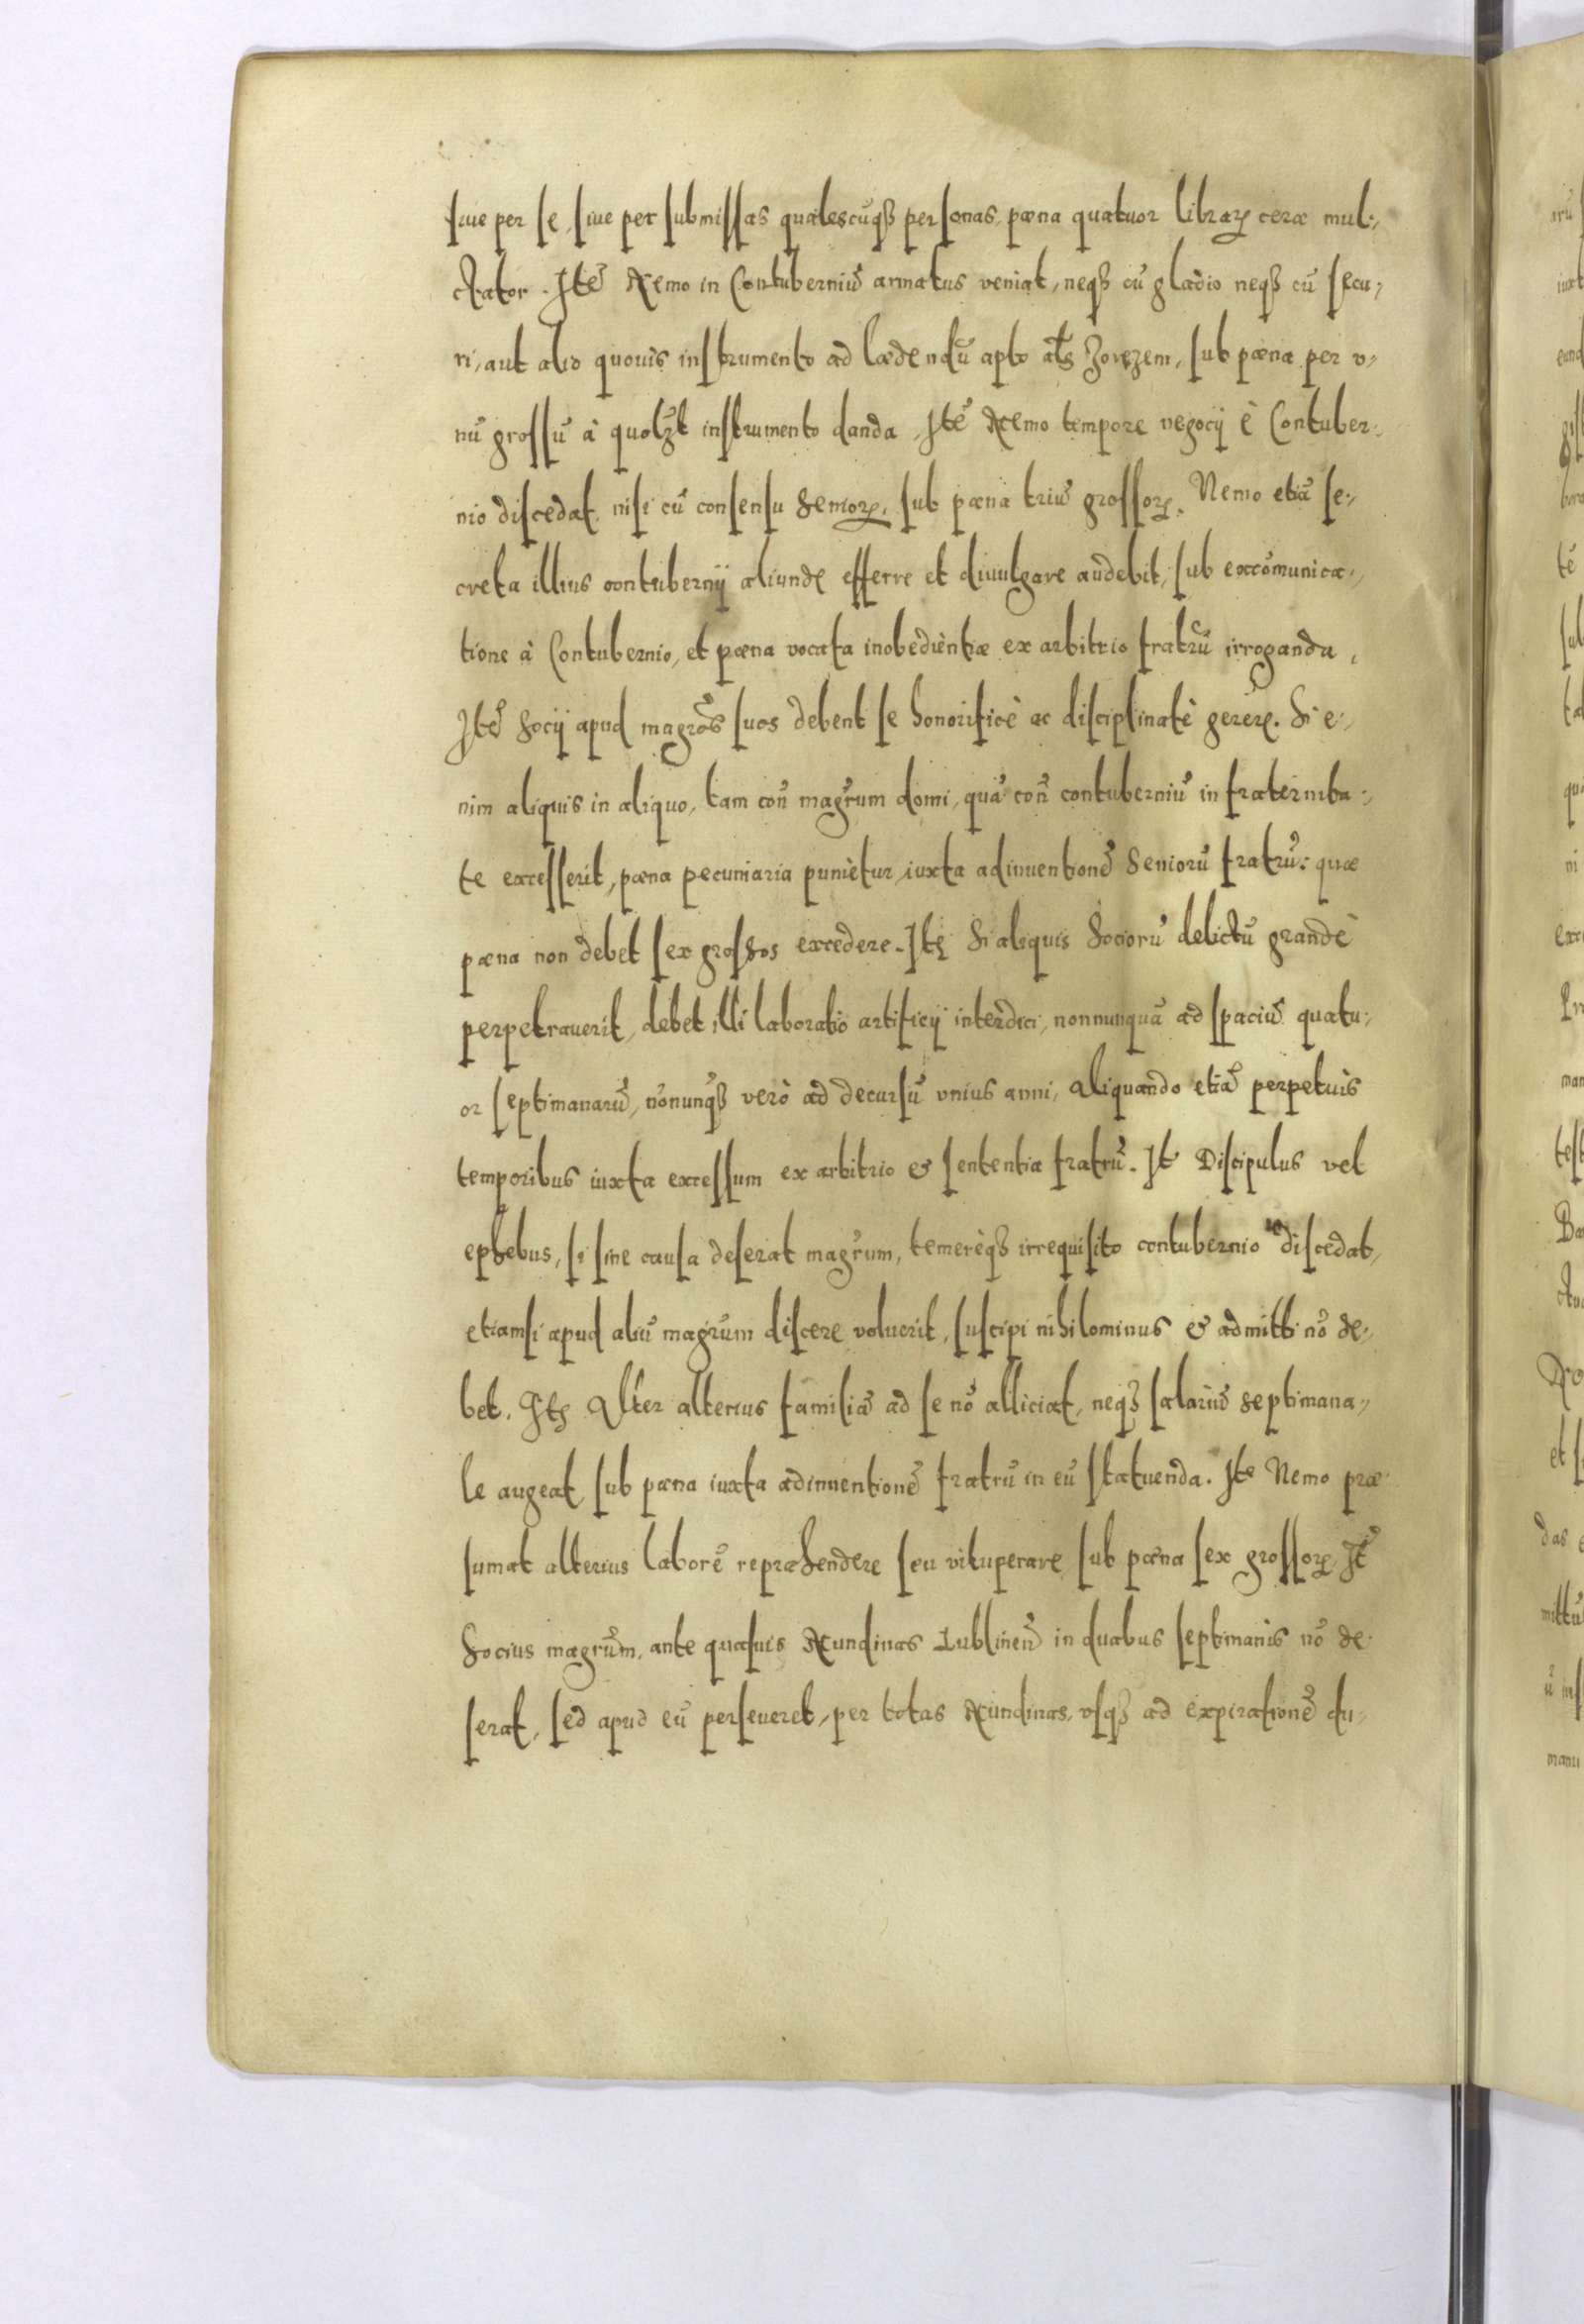 siue per se, siue per submissas qualescūqß personas, pœna quatuor libraꝝ ceræ mul:,
ctator. Itē Nemo in Contuberniū armatus veniat, neqß cū gladio neqß cū secu,
ri, aut alio quouis instrumento ad lædendū apto als Zorężem, sub pœna per v,
nū grossū à quolꝫt instrumento danda. Itē Nemo tempore negocij è Contuber:,
nio discedat, nisi cū consensu Senioꝝ, sub pœna triū grossoꝝ. Nemo etiā se:,
creta illius contubernij aliunde efferre et diuulgare audebit, sub excōmunica:,
tione à Contubernio, et pœna vocata inobedientiæ ex arbitrio fratrū irroganda.
Itē Socij apud magrōs suos debent se honorificè ac disciplinatè gerere. Si e:,
nim aliquis in aliquo, tam con̄ magr̄um domi, quā con̄ contuberniū in fraternita:,
te excesserit, pœna pecuniaria punietur iuxta adinuentionē Seniorū fratrū: quæ
pœna non debet sex grossos excedere. Itē Si aliquis Sociorū delictū grandè
perpetrauerit, debet illi laboratio artificij interdici, nonnunquā ad spaciū quatu:,
or septimanarū, nōnunqß verò ad decursū vnius anni, aliquando etiā perpetuis
temporibus iuxta excessum ex arbitrio & sententia fratrū. It Discipulus vel
ephebus, si sine causa deserat magr̄um, temerèqß irrequisito contubernio discedat,
etiamsi apud aliū magr̄um discere voluerit, suscipi nihilominus & admitti nō de:,
bet. Itē Alter alterius familiā ad se nō alliciat, neqß salariū septimana,
le augeat, sub pœna iuxta adinuentionē fratrū in eū statuenda. Itē Nemo præ
sumat alterius laborē repræhendere seu vituperare sub pœna sex grossoꝝ. It̄
Socius magr̄um, ante quasuis Nundinas Lublinen̄ in duabus septimanis nō de
serat, sed apud eū perseueret, per totas Nundinas, vsqß ad expirationē du,